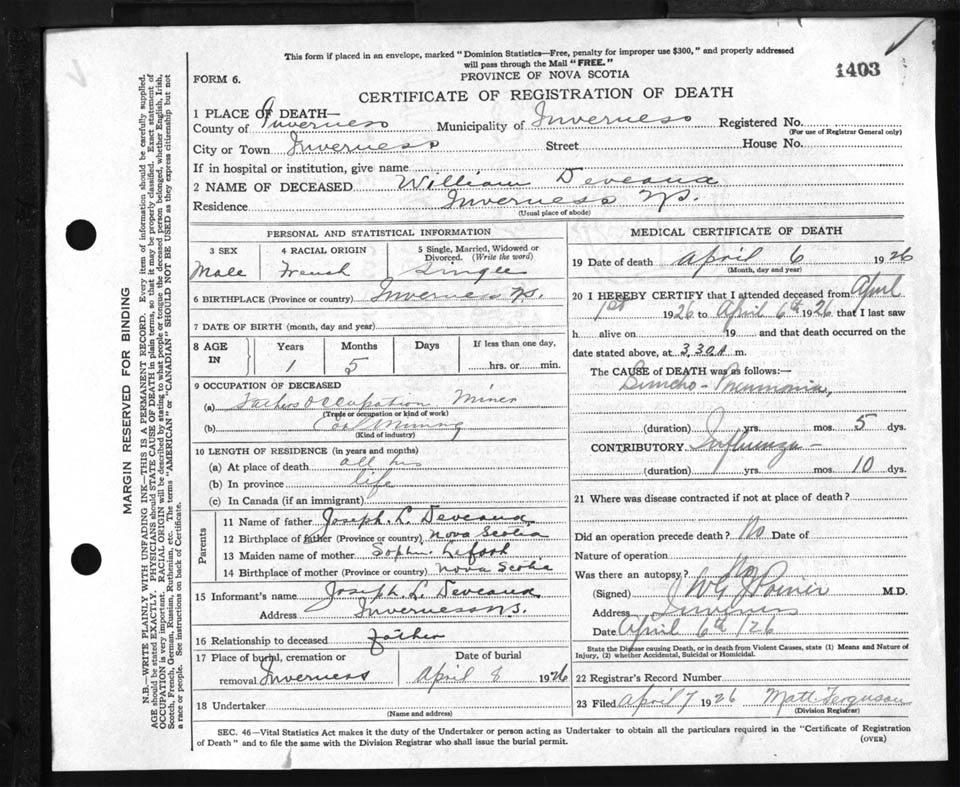 This form if placed in an envelope, marked "Dominion Statistics—Free, penalty for improper use $300," and properly addressed
will pass through the Mail "FREE."
FORM 6.
PROVINCE OF NOVA SCOTIA
1403
CERTIFICATE OF REGISTRATION OF DEATH
1 PLACE OF DEATH—
County of Inverness Municipality of Inverness Registered No.
(For use of Registrar General only)
City or Town Inverness Street House No.
If in hospital or institution, give name
2 NAME OF DECEASED William Deveaux
Residence Inverness N.S.
(Usual place of abode)
PERSONAL AND STATISTICAL INFORMATION
3 SEX 4 RACIAL ORIGIN 5 Single, Married, Widowed or
Divorced. (Write the word)
Male French Single
6 BIRTHPLACE (Province or country) Inverness N.S.
7 DATE OF BIRTH (month, day and year)
8 AGE IN Years Months Days If less than one day,
1 5 hrs. or min.
9 OCCUPATION OF DECEASED
(a) Fathers Occupation Miner
(Trade or occupation or kind of work)
(b) Coal Mining
(Kind of industry)
10 LENGTH OF RESIDENCE (in years and months)
(a) At place of death all his
(b) In province life
(c) In Canada (if an immigrant)
Parents
11 Name of father Joseph L. Deveaux
12 Birthplace of father (Province or country) Nova Scotia
13 Maiden name of mother Sophie
14 Birthplace of mother (Province or country) Nova Scotia
15 Informant's name Joseph L. Deveaux
Address Inverness N.S.
16 Relationship to deceased Father
17 Place of burial, cremation or Date of burial
removal Inverness April 8 1926
18 Undertaker
(Name and address)
MEDICAL CERTIFICATE OF DEATH
19 Date of death April 6 1926
(Month, day and year)
20 I HEREBY CERTIFY that I attended deceased from April
1st 1926 to April 6th 1926 that I last saw
h alive on 19 and that death occurred on
date stated above, at 3.30 A m.
The CAUSE of DEATH was as follows:—
Broncho-Pneumonia,
(duration) yrs. mos. 5 dys.
CONTRIBUTORY Influenza—
(duration) yrs. mos. 10 dys.
21 Where was disease contracted if not at place of death?
Did an operation precede death? No Date of
Nature of operation
Was there an autopsy? No
(Signed) M.D.
Address Inverness
Date April 6th/26
State the Disease causing Death, or in death from Violent Causes, state (1) Means and Nature of
Injury, (2) whether Accidental, Suicidal or Homicidal.
22 Registrar's Record Number
23 Filed April 7 1926 Matt. Ferguson
(Division Registrar)
SEC. 46—Vital Statistics Act makes it the duty of the Undertaker or person acting as Undertaker to obtain all the particulars required in the "Certificate of Registration
of Death" and to file the same with the Division Registrar who shall issue the burial permit.
(OVER)
MARGIN RESERVED FOR BINDING
N.B.—WRITE PLAINLY WITH UNFADING INK—THIS IS A PERMANENT RECORD. Every item of information should be carefully supplied.
AGE should be stated EXACTLY. PHYSICIANS should STATE CAUSE OF DEATH in plain terms, so that it may be properly classified. Exact statement of
OCCUPATION is very important. RACIAL ORIGIN will be described by stating to what people or tongue the deceased person belonged, whether English, Irish,
Scotch, French, German, Russian, Ruthenian, etc. The terms "AMERICAN" or "CANADIAN" SHOULD NOT BE USED as they express citizenship but not
a race or people. See instructions on back of Certificate.